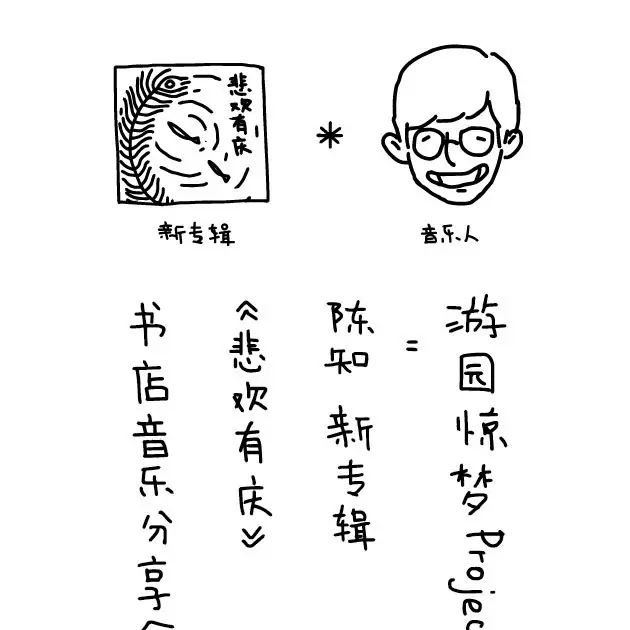 悲欢有庆
*
新专辑
音乐人
游园惊梦Projec
=
陈知 新专辑
《悲欢有庆》
书店音乐分享